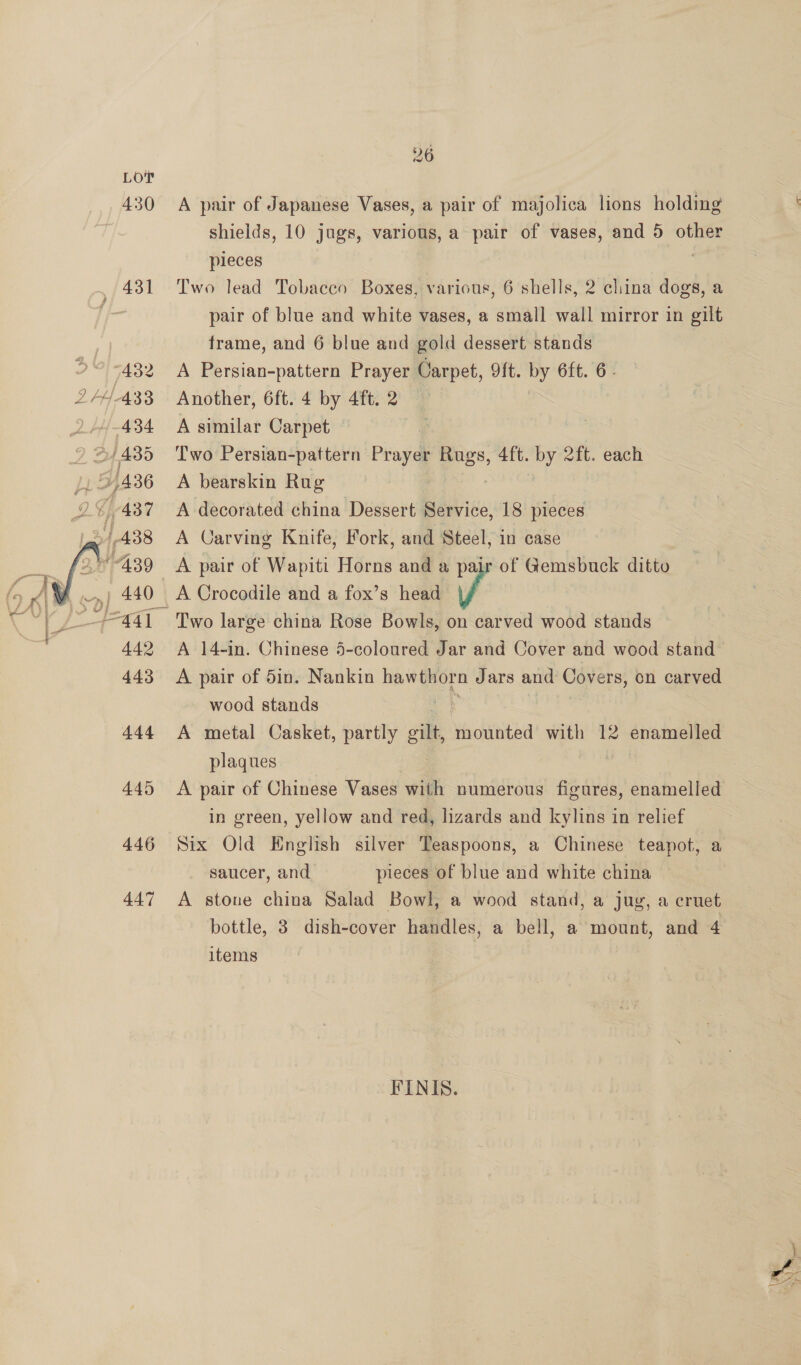 26
LOT
430 A pair of Japanese Vases, a pair of majolica lions holding
shields, 10 jugs, various, a pair of vases, and 5 other
pieces
431 Two lead Tobacco Boxes, various, 6 shells, 2 china dogs, a
pair of blue and white vases, a small wall mirror in gilt
frame, and 6 blue and gold dessert stands
432 A Persian-pattern Prayer Carpet, 9ft. by 6ft. 6
433 Another, 6ft. 4 by 4ft. 2
434 A similar Carpet
435 Two Persian-pattern Prayer Rugs, 4ft. by 2ft. each
436 A bearskin Rug
437 A decorated china Dessert Service, 18 pieces
438 A Carving Knife, Fork, and Steel, in case
439 A pair of Wapiti Horns and a pair of Gemsbuck ditto
440 A Crocodile and a fox's head
441 Two large china Rose Bowls, on carved wood stands
442 A 14-in. Chinese 5-coloured Jar and Cover and wood stand
443 A pair of 5in. Nankin hawthorn Jars and Covers, on carved
wood stands
444 A metal Casket, partly gilt, mounted with 12 enamelled
plaques
445 A pair of Chinese Vases with numerous figures, enamelled
in green, yellow and red, lizards and kylins in relief
446 Six Old English silver Teaspoons, a Chinese teapot, a
saucer, and pieces of blue and white china
447 A stone china Salad Bowl, a wood stand, a jug, a cruet
bottle, 3 dish-cover handles, a bell, a mount, and 4
items
FINIS.